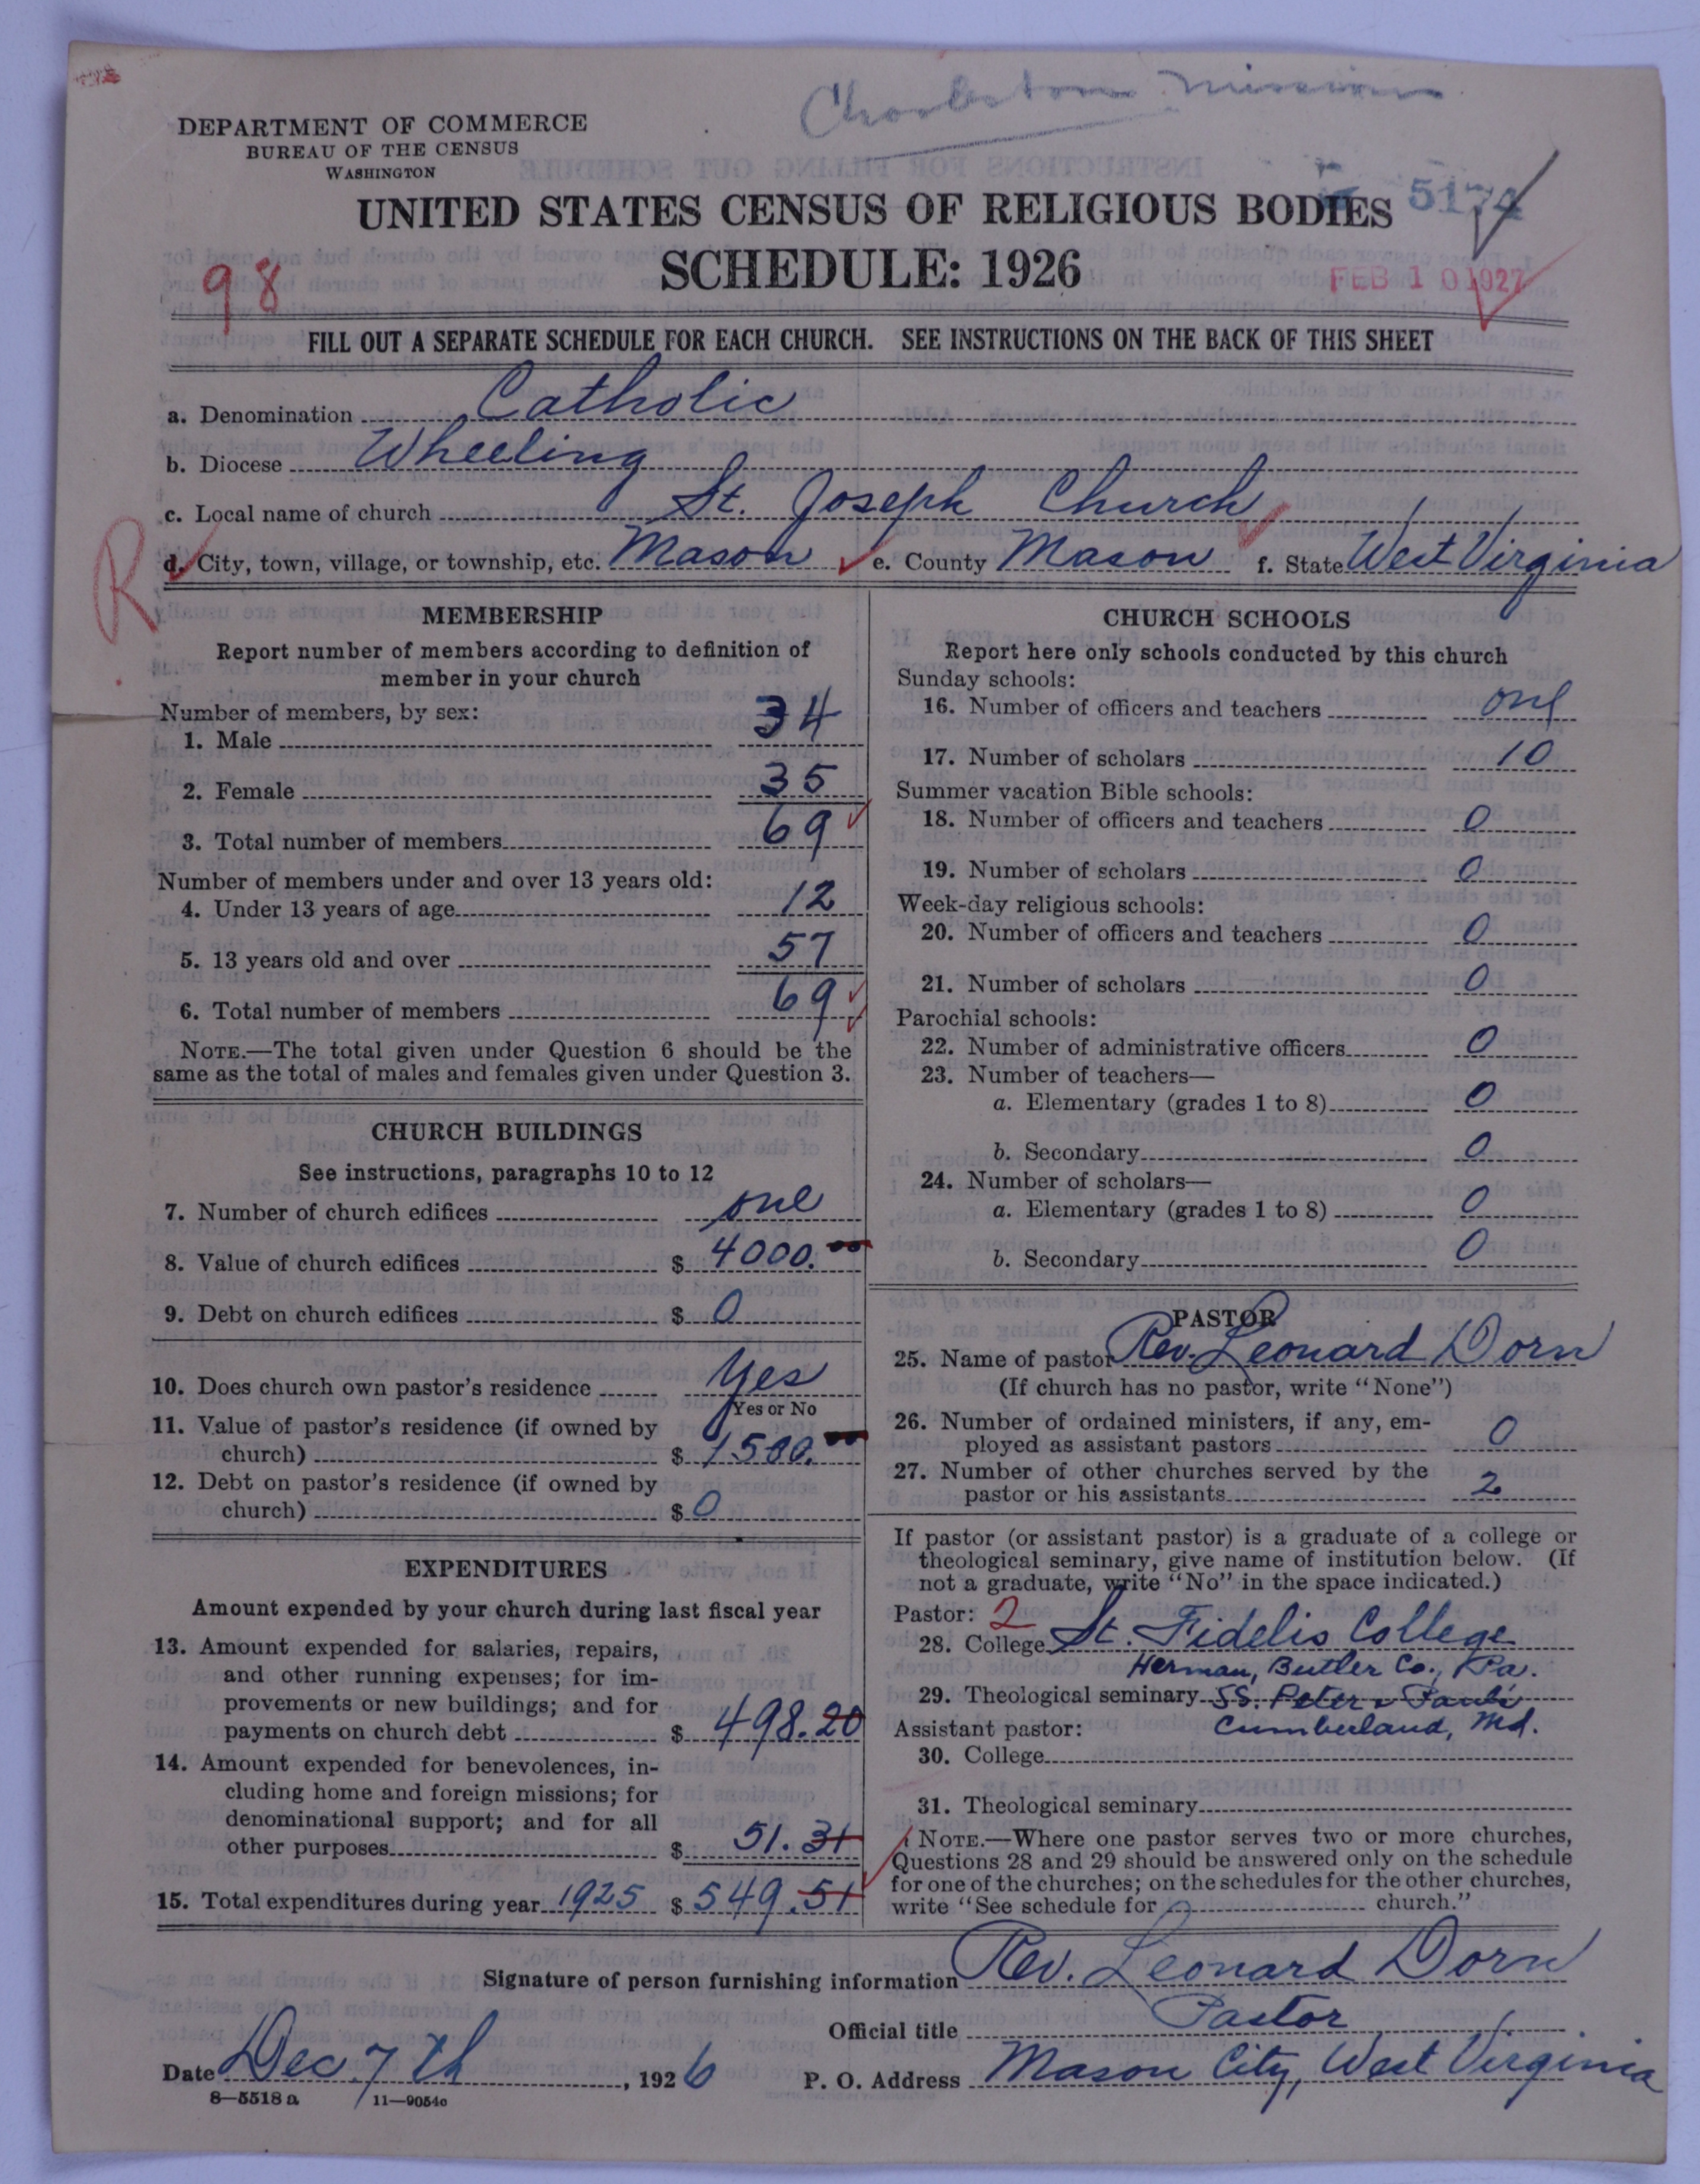 Charleston mission
DEPARTMENT OF COMMERCE
BUREAU OF THE CENSUS
WASHINGTON
UNITED STATES CENSUS OF RELIGIOUS BODIES
5174
SCHEDULE: 1926
98
FEB 10 1927
FILL OUT A SEPARATE SCHEDULE FOR EACH CHURCH. SEE INSTRUCTIONS ON THE BACK OF THIS SHEET
a. Denomination Catholic
b. Diocese Wheeling
c. Local name of church St. Joseph Church
R
d. City, town, village, or township, etc. Mason e. County Mason f. State West Virginia
MEMBERSHIP
Report number of members according to definition of
member in your church
Number of members, by sex:
1. Male 34
2. Female 35
3. Total number of members 69
Number of members under and over 13 years old:
4. Under 13 years of age 12
5. 13 years old and over 57
6. Total number of members 69
NOTE.—The total given under Question 6 should be the
same as the total of males and females given under Question 3.
CHURCH BUILDINGS
See instructions, paragraphs 10 to 12
7. Number of church edifices one
8. Value of church edifices $ 4000.00
9. Debt on church edifices $ 0
10. Does church own pastor's residence Yes
Yes or No
11. Value of pastor's residence (if owned by
church) $ 1500.00
12. Debt on pastor's residence (if owned by
church) $ 0
EXPENDITURES
Amount expended by your church during last fiscal year
13. Amount expended for salaries, repairs,
and other running expenses; for im-
provements or new buildings; and for
payments on church debt $ 498.20
14. Amount expended for benevolences, in-
cluding home and foreign missions; for
denominational support; and for all
other purposes $ 51.31
15. Total expenditures during year 1925 $ 549.51
CHURCH SCHOOLS
Report here only schools conducted by this church
Sunday schools:
16. Number of officers and teachers one
17. Number of scholars 10
Summer vacation Bible schools:
18. Number of officers and teachers 0
19. Number of scholars 0
Week-day religious schools:
20. Number of officers and teachers 0
21. Number of scholars 0
Parochial schools:
22. Number of administrative officers 0
23. Number of teachers—
a. Elementary (grades 1 to 8) 0
b. Secondary 0
24. Number of scholars—
a. Elementary (grades 1 to 8) 0
b. Secondary 0
PASTOR
25. Name of pastor Rev. Leonard Dorn
(If church has no pastor, write "None")
26. Number of ordained ministers, if any, em-
ployed as assistant pastors 0
27. Number of other churches served by the
pastor or his assistants 2
If pastor (or assistant pastor) is a graduate of a college or
theological seminary, give name of institution below. (If
not a graduate, write "No" in the space indicated.)
Pastor: 2
28. College St. Fidelis College
Herman, Butler Co., Pa.
29. Theological seminary SS. Peter & Paul's
Cumberland, Md.
Assistant pastor:
30. College
31. Theological seminary
NOTE.—Where one pastor serves two or more churches,
Questions 28 and 29 should be answered only on the schedule
for one of the churches; on the schedules for the other churches,
write "See schedule for church."
Signature of person furnishing information Rev. Leonard Dorn
Official title Pastor
Date Dec 7th, 1926 P. O. Address Mason City, West Virginia
8—5518 a 11—9054c